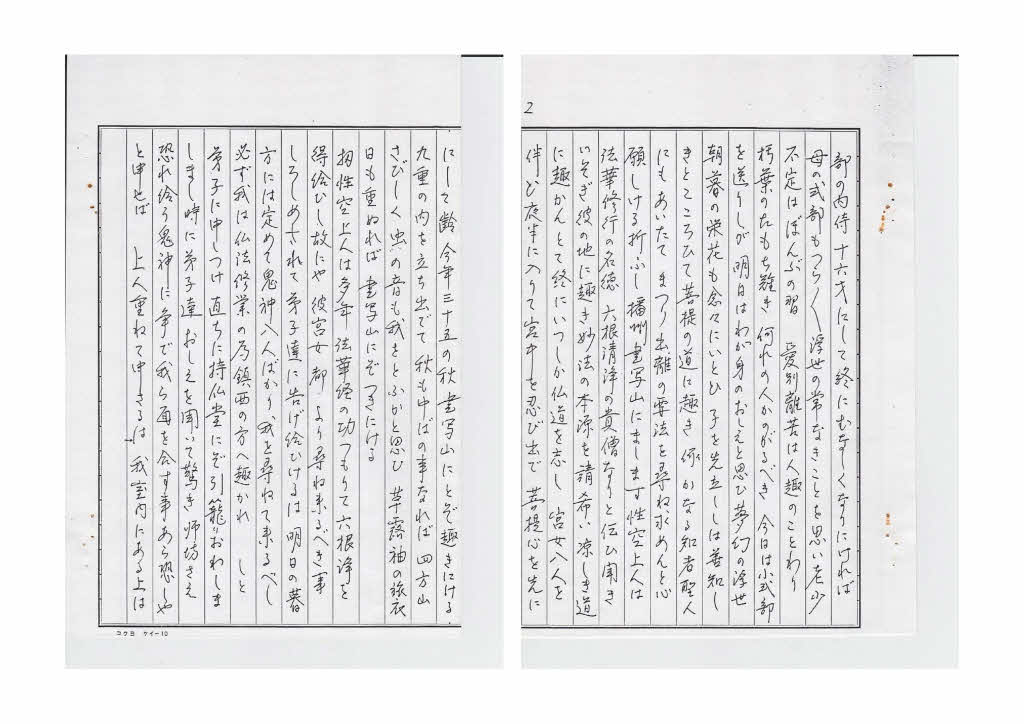 2
部の内侍 十六才にして終にむなしくなりにければ
母の式部もつら〳〵浮世の常なきことを思い老少
不定はぼんぶの習 愛別離苦は人趣のことわり
朽葉のたもち難き 何れの人かのがるべき 今日は小式部
を送りしが 明日はわが身のおしえと思ひ夢幻の浮世
朝暮の栄花も念々にいとひ 子を先立しは善知し
きところひて菩提の道に趣き 何かなる知者聖人
にもあいたてまつり出離の要法を尋ね求めんと心
願しける折ふし 播州書写山にまします性空上人は
法華修行の名徳 六根清浄の貴僧なりと伝ひ聞き
いそぎ彼の地に趣き妙法の本源を請希い 凉しき道
に趣かんとて終にいつしか仏道を志し 宮女八人を
伴ひ夜半に入りて宮中を忍び出で 菩提心を先に
にして齢今年三十五の秋書写山にとぞ趣きにける
九重の内を立ち出でて 秋も中ばの事なれば 四方山
さびしく虫の音も我をとふかと思ひ 草露袖の旅衣
日も重ぬれば 書写山にぞつきにける
扨性空上人は多年法華経の功つもりて六根浄を
得給ひし故にや 彼宮女 都より尋ね来るべき事
しろしめされて弟子達に告げ給ひけるは 明日の暮
方には定めて鬼神八人ばかり 我を尋ねて来るべし
必ず我は仏法修業の為鎮西の方へ趣かれしと
弟子に申しつけ 直ちに持仏堂にぞ引籠りおわしま
しまし時に弟子達おしえを聞いて驚き師坊さえ
恐れ給う鬼神に争で我ら面を合す事あら恐しや
と申せば 上人重ねて申さるは 我室内にある上は
コクヨ ケイ-10